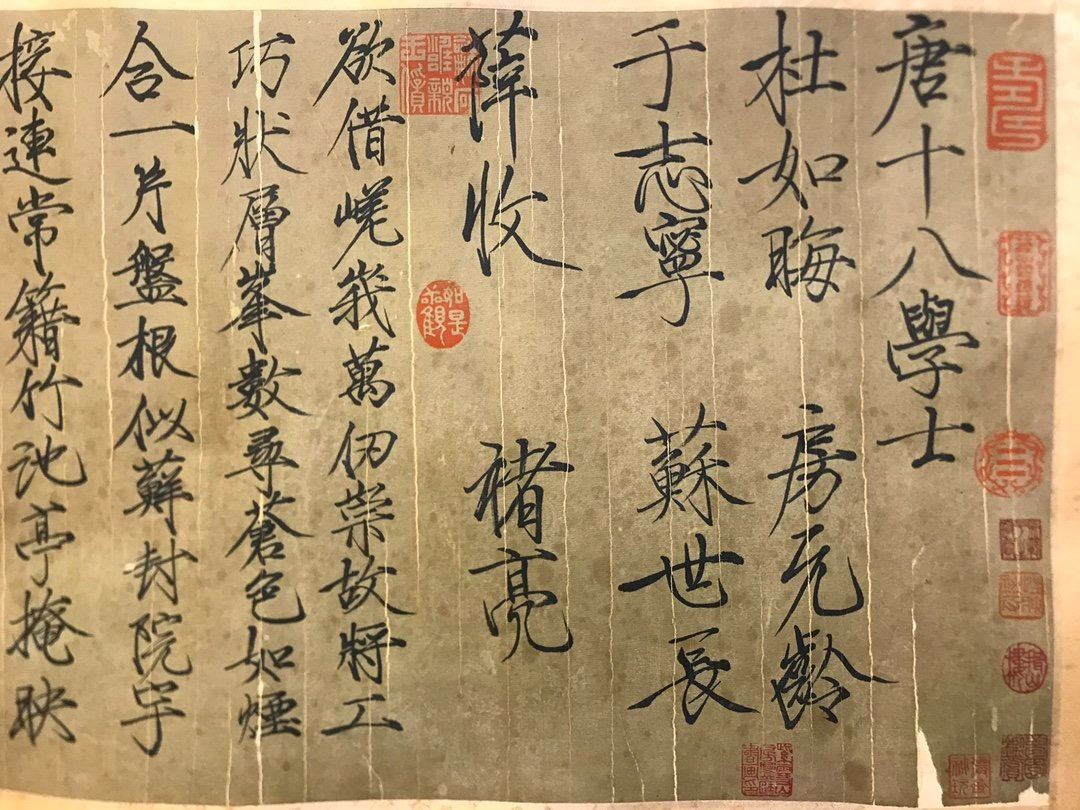 唐十八學士
杜如晦 房元齡
于志寧 蘇世長
薛收 褚亮
欲借嵯峨萬仞崇故將工
巧狀層峯數尋蒼色如煙
合一片盤根似蘚封院宇
接連常籍竹池亭掩映
如是
我觀